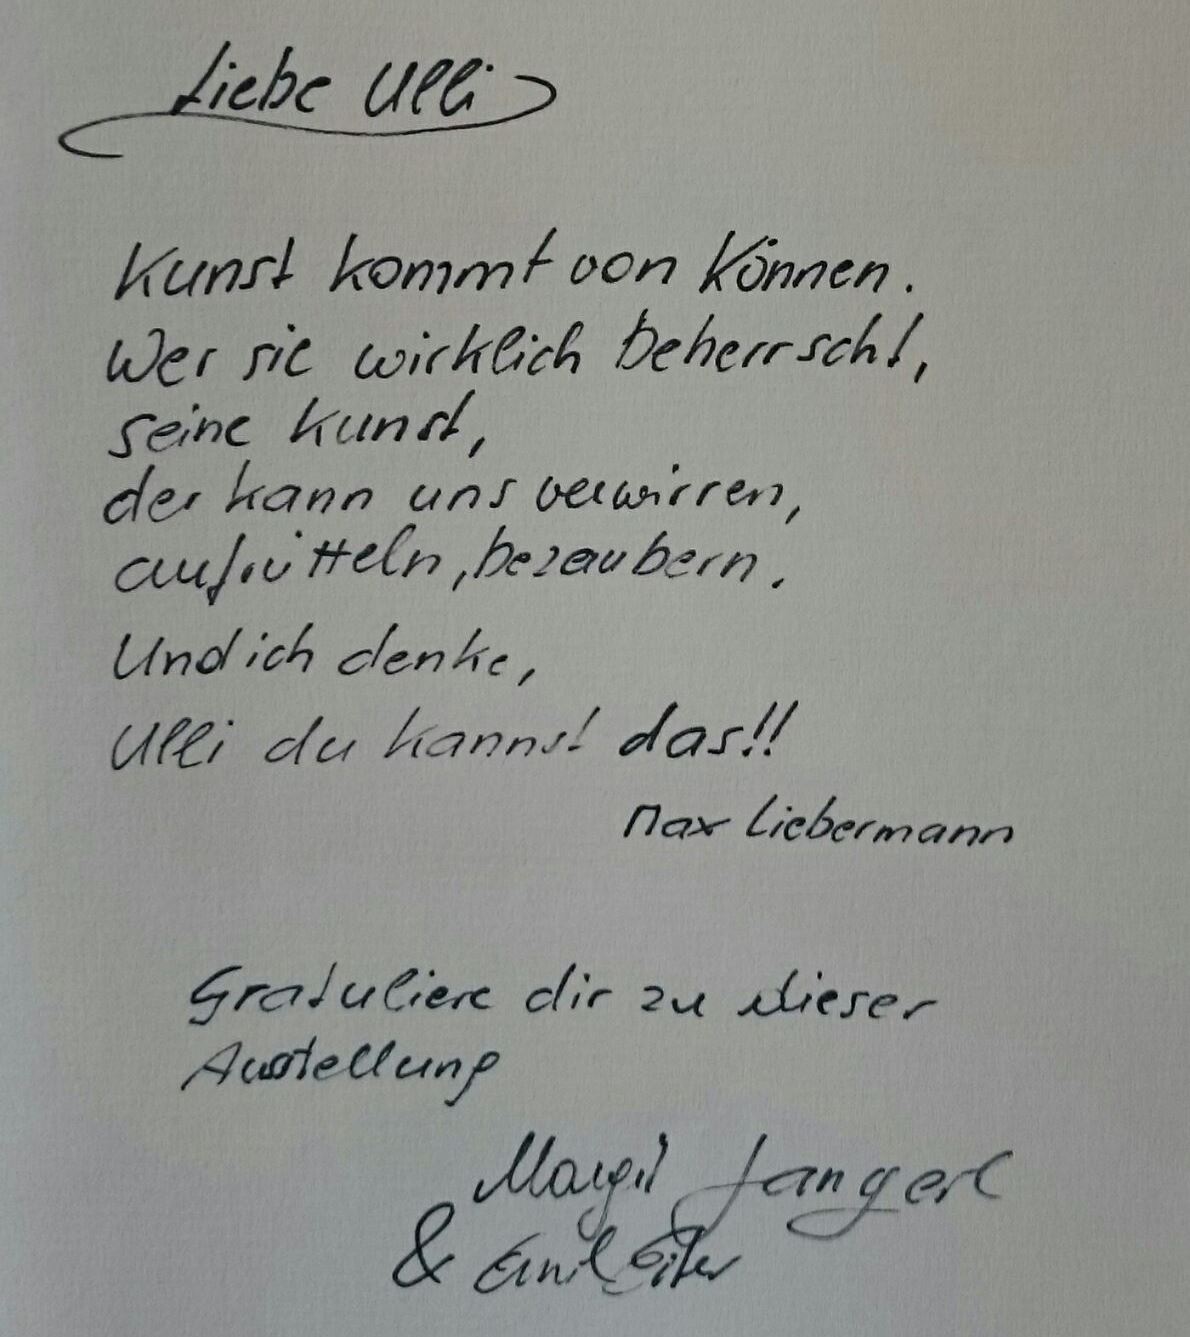 Liebe Ulli
Kunst kommt von Können.
Wer sie wirklich beherrscht,
seine Kunst,
der kann uns verwirren,
aufrütteln, bezaubern.
Und ich denke,
Ulli du kannst das!!
Max Liebermann
Gratuliere dir zu dieser
Ausstellung
Margit
& Emil